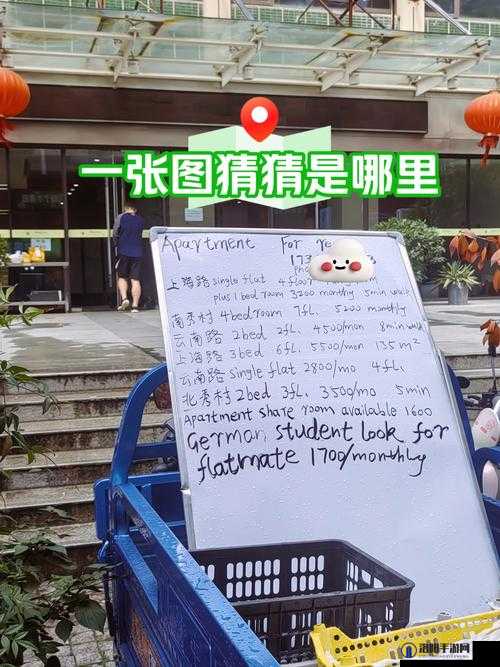 一张图猜猜是哪里
Apartment For re
173
上海路 single flat 4floor
plus 1 bed room 3200 monthly 5min walk
南秀村 4bedroom 7fL. 5200 monthly
云南路 2bed 2fL. 4500/mon 8min walk
上海路 3bed 6fL. 5500/mon 135m²
云南路 single flat 2800/mo 4fL.
北秀村 2bed 3fL. 3500/mo 5min
Apartment share room available 1600
German student look for
flatmate 1700/monthly
洛阳手游网